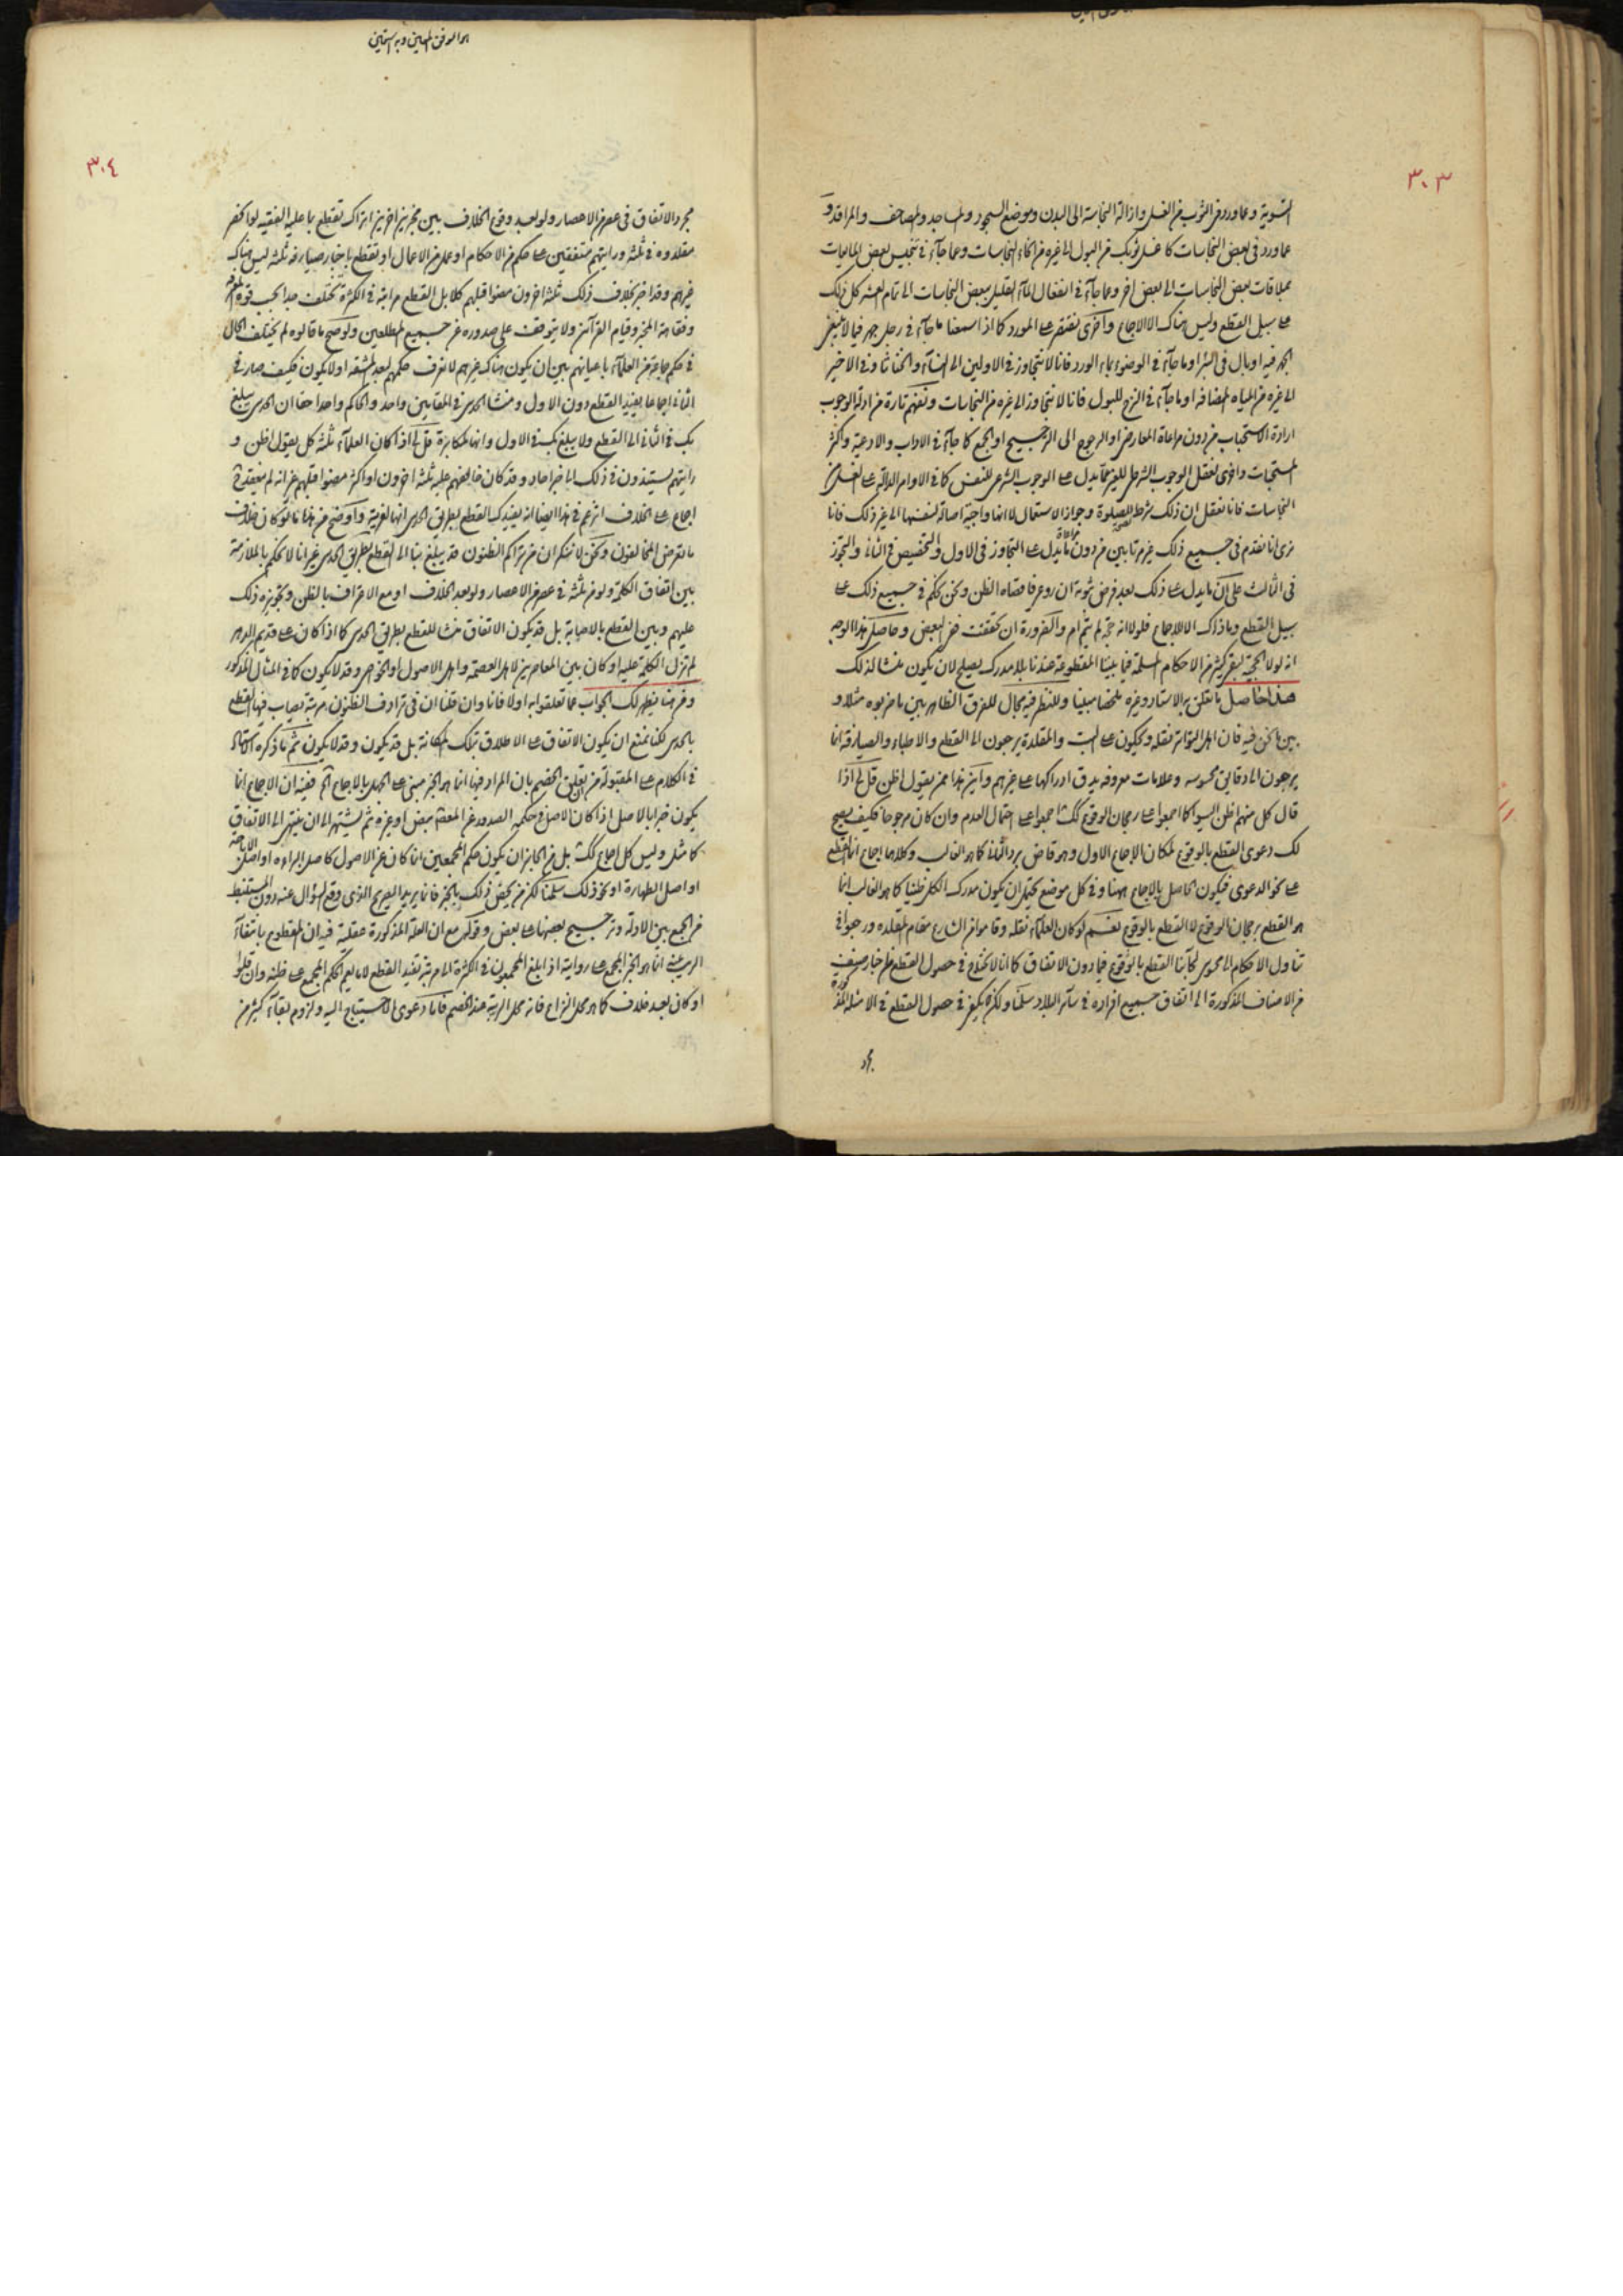 ٣٠٣
التسوية وعما ورد في الثوب من الغسل وازالة النجاسة الى البدن وموضع السجود والمساجد والمصاحف والمراقد و
عما ورد في بعض النجاسات كاغسل ثوبك من البول الى غيره من انحاء النجاسات وعما جاء في تنجيس بعض المايعات
بملاقات بعض النجاسات الى بعض اخر وعما جاء في انفعال الماء القليل ببعض النجاسات الى تمام العشر كل ذلك
على سبيل القطع وليس هناك الا الاجماع واخرى نقتصر على المورد كما اذا سمعنا ما جاء في رجل جهر فيما لا ينبغي
الجهر فيه او بال في البئر او ما جاء في الوضوء بماء الورد فانا لا نتجاوز في الاولين الى النساء والخناثا وفي الاخير
الى غيره من المياه المضافة او ما جاء في النزح للبول فانا لا نتجاوز الى غيره من النجاسات ونفهم تارة من ادلة الوجوب
ارادة الاستحباب من دون مراعاة المعارض او الرجوع الى الترجيح او الجمع كما جاء في الاداب والادعية واكثر
المستحبات واخرى نعقل الوجوب الشرطي للغير مما يدل على الوجوب الشرعي للنفس كما في الاوامر الدالة على الغسل من
النجاسات فانا نعقل ان ذلك شرط للصلوة وجواز الاستعمال لا انها واجبة اصالة لنفسها الى غير ذلك فانا
نرى انا نقدم في جميع ذلك غير مرتابين من دون ما يدل على التجاوز في الاول والتخصيص في الثاني والتجوز
في الثالث على ان ما يدل على ذلك بعد فرض ثبوته ان روعي فاقصاه الظن ونحن نحكم في جميع ذلك على
سبيل القطع وما ذاك الا للاجماع فلولا انه حجة لم يتم ام والضرورة ان تحققت ففي البعض وحاصل هذا الوجه
انه لولا الحجية لبقي كثير من الاحكام المسلمة فيما بيننا المقطوعة عندنا بلا مدرك يصلح لان يكون منشا لذلك
هذا حاصل ما تعلق به الاستاد وغيره ملخصا مبينا وللنظر فيه مجال للفرق الظاهر بين ما ضربوه مثلا و
بين ما نحن فيه فان اهل التواتر نقله ويحكون على البت والمقلدة يرجعون الى القطع والاطباء والصيارفة انما
يرجعون الى دقايق محسوسه وعلامات معروفه يدق ادراكها على غيرهم واين هذا ممن يقول اظن قل لي اذا
قال كل منهم اظن اليسوا كما اجمعوا على رجحان الوقوع كك اجمعوا على احتمال العدم وان كان مرجوحا فكيف يصح
لك دعوى القطع بالوقوع لمكان الاجماع الاول وهو قاض برد الثاني كما هو الغالب وكلاهما اجماع انما القطع
على نحو الدعوى فيكون الحاصل بالاجماع ههنا وفي كل موضع يحتمل ان يكون مدرك الكل ظنيا كما هو الغالب انما
هو القطع برجحان الوقوع لا القطع بالوقوع نعم لو كان العلماء نقله وقاموا من الشارع مقام المقلده ورجعوا في
تناول الاحكام الى محسوس لجاءنا القطع بالوقوع فيما دون الاتفاق كما انا لا نحتاج في حصول القطع باخبار صنف
من الاصناف المذكورة الى اتفاق جميع افراده في ساير البلاد سلمنا ولكن يكفي في حصول القطع في الامثلة المذكورة
مجرد
هو الموفق المعين وبه استعين
٣٠٤
مجرد الاتفاق في عصر من الاعصار ولو بعد وقوع الخلاف بين مخبرين اخرين اتراك تقطع بما عليه الفقيه لو اخبر
مقلدوه في ثلثه ورايتهم متفقين على حكم من الاحكام او عمل من الاعمال او تقطع باخبار صيارفه ثلثه ليس هناك
غيرهم وقد اخبر بخلاف ذلك ثلثه اخرون مضوا قبلهم كلا بل القطع مراتبه في الكثرة تختلف جدا بحسب قوة المخبر
وفقاهة المخبر وقيام القرائن ولا يتوقف على صدوره عن جميع المطلعين ولو صح ما قالوه لم يختلف الحال
في حكم جماعة من العلماء باعيانهم بين ان يكون هناك غيرهم لا نعرف حكمهم لبعد المشقه او لا يكون فكيف صار في
الثاني اجماعا يفيد القطع دون الاول ومنشا الحدس في المقامين واحد والحاكم واحد احقا ان الحدس يبلغ
بك في الثاني الى القطع ولا يبلغ بك في الاول وانها لمكابرة قل لي اذا كان العلماء ثلثه كل يقول اظن و
رايتهم يستندون في ذلك الى خبر احاد وقد كان خالفهم عليه ثلثه اخرون او اكثر مضوا قبلهم غير انه لم ينعقد
اجماع على الخلاف اتزعم في هذا ايضا انه يفيدك القطع بطريق الحدس انها لفرية واوضح من هذا ما لو كان خلاف
ما تعرض المخالفون ونحن لا ننكر ان من تراكم الظنون قد يبلغ بنا الى القطع بطريق الحدس غير انا لا نحكم بالملازمة
بين اتفاق الكلمة ولو من ثلثه في عصر من الاعصار ولو بعد الخلاف او مع الاعتراف بالظن وتجويزه ذلك
عليهم وبين القطع بالاصابة بل قد يكون الاتفاق منشا للقطع بطريق الحدس كما اذا كان على قديم الدهر
لم تزل الكلمة عليه او كان بين المعاصرين لاهل العصمة واهل الاصول او الخواص وقد لا يكون كما في المثال المذكور
ومن هنا يظهر لك الجواب عما تعلقوا به اولا فانا وان قلنا ان في ترادف الظنون مرتبة يصاب فيها القطع
بالحدس لكنا نمنع ان يكون الاتفاق على الاطلاق بتلك المكانة بل قد يكون وقد لا يكون ثم ما ذكره الاستاد
في الكلام على المقبولة من تعلق الخصم بان المراد فيها انما هو الخبر مبني على الجهل بالاجماع الخ ففيه ان الاجماع انما
يكون خبرا بالاصل اذا كان الاصل في حكمه الصدور عن المعصوم ببعض او غيره ثم يشتهر الى ان ينتهي الى الاتفاق
كما مثل وليس كل اجماع كك بل من الجايز ان يكون حكم المجمعين انما كان عن الاصول كاصل البراءه او اصل الاباحة
او اصل الطهارة او نحو ذلك سلمنا لكن من يخص ذلك بالخبر فانما يريد الصريح الذي وقع السؤال عنه دون المستنبط
من الجمع بين الادلة وترجيح بعضها على بعض وقولكم مع ان العلة المذكورة عقلية فيه ان المقطوع بانتفاء
الريب عنه انما هو الخبر المجمع على روايته اذا بلغ المجمعون في الكثرة الى مرتبة تفيد القطع لا ما يعم الحكم المجمع على ظنه وان قلوا
او كان بعد خلاف كما هو محل النزاع فانه محل الريب عند الخصم فاما دعوى الاحتياج اليه ولزوم بقاء كثير من